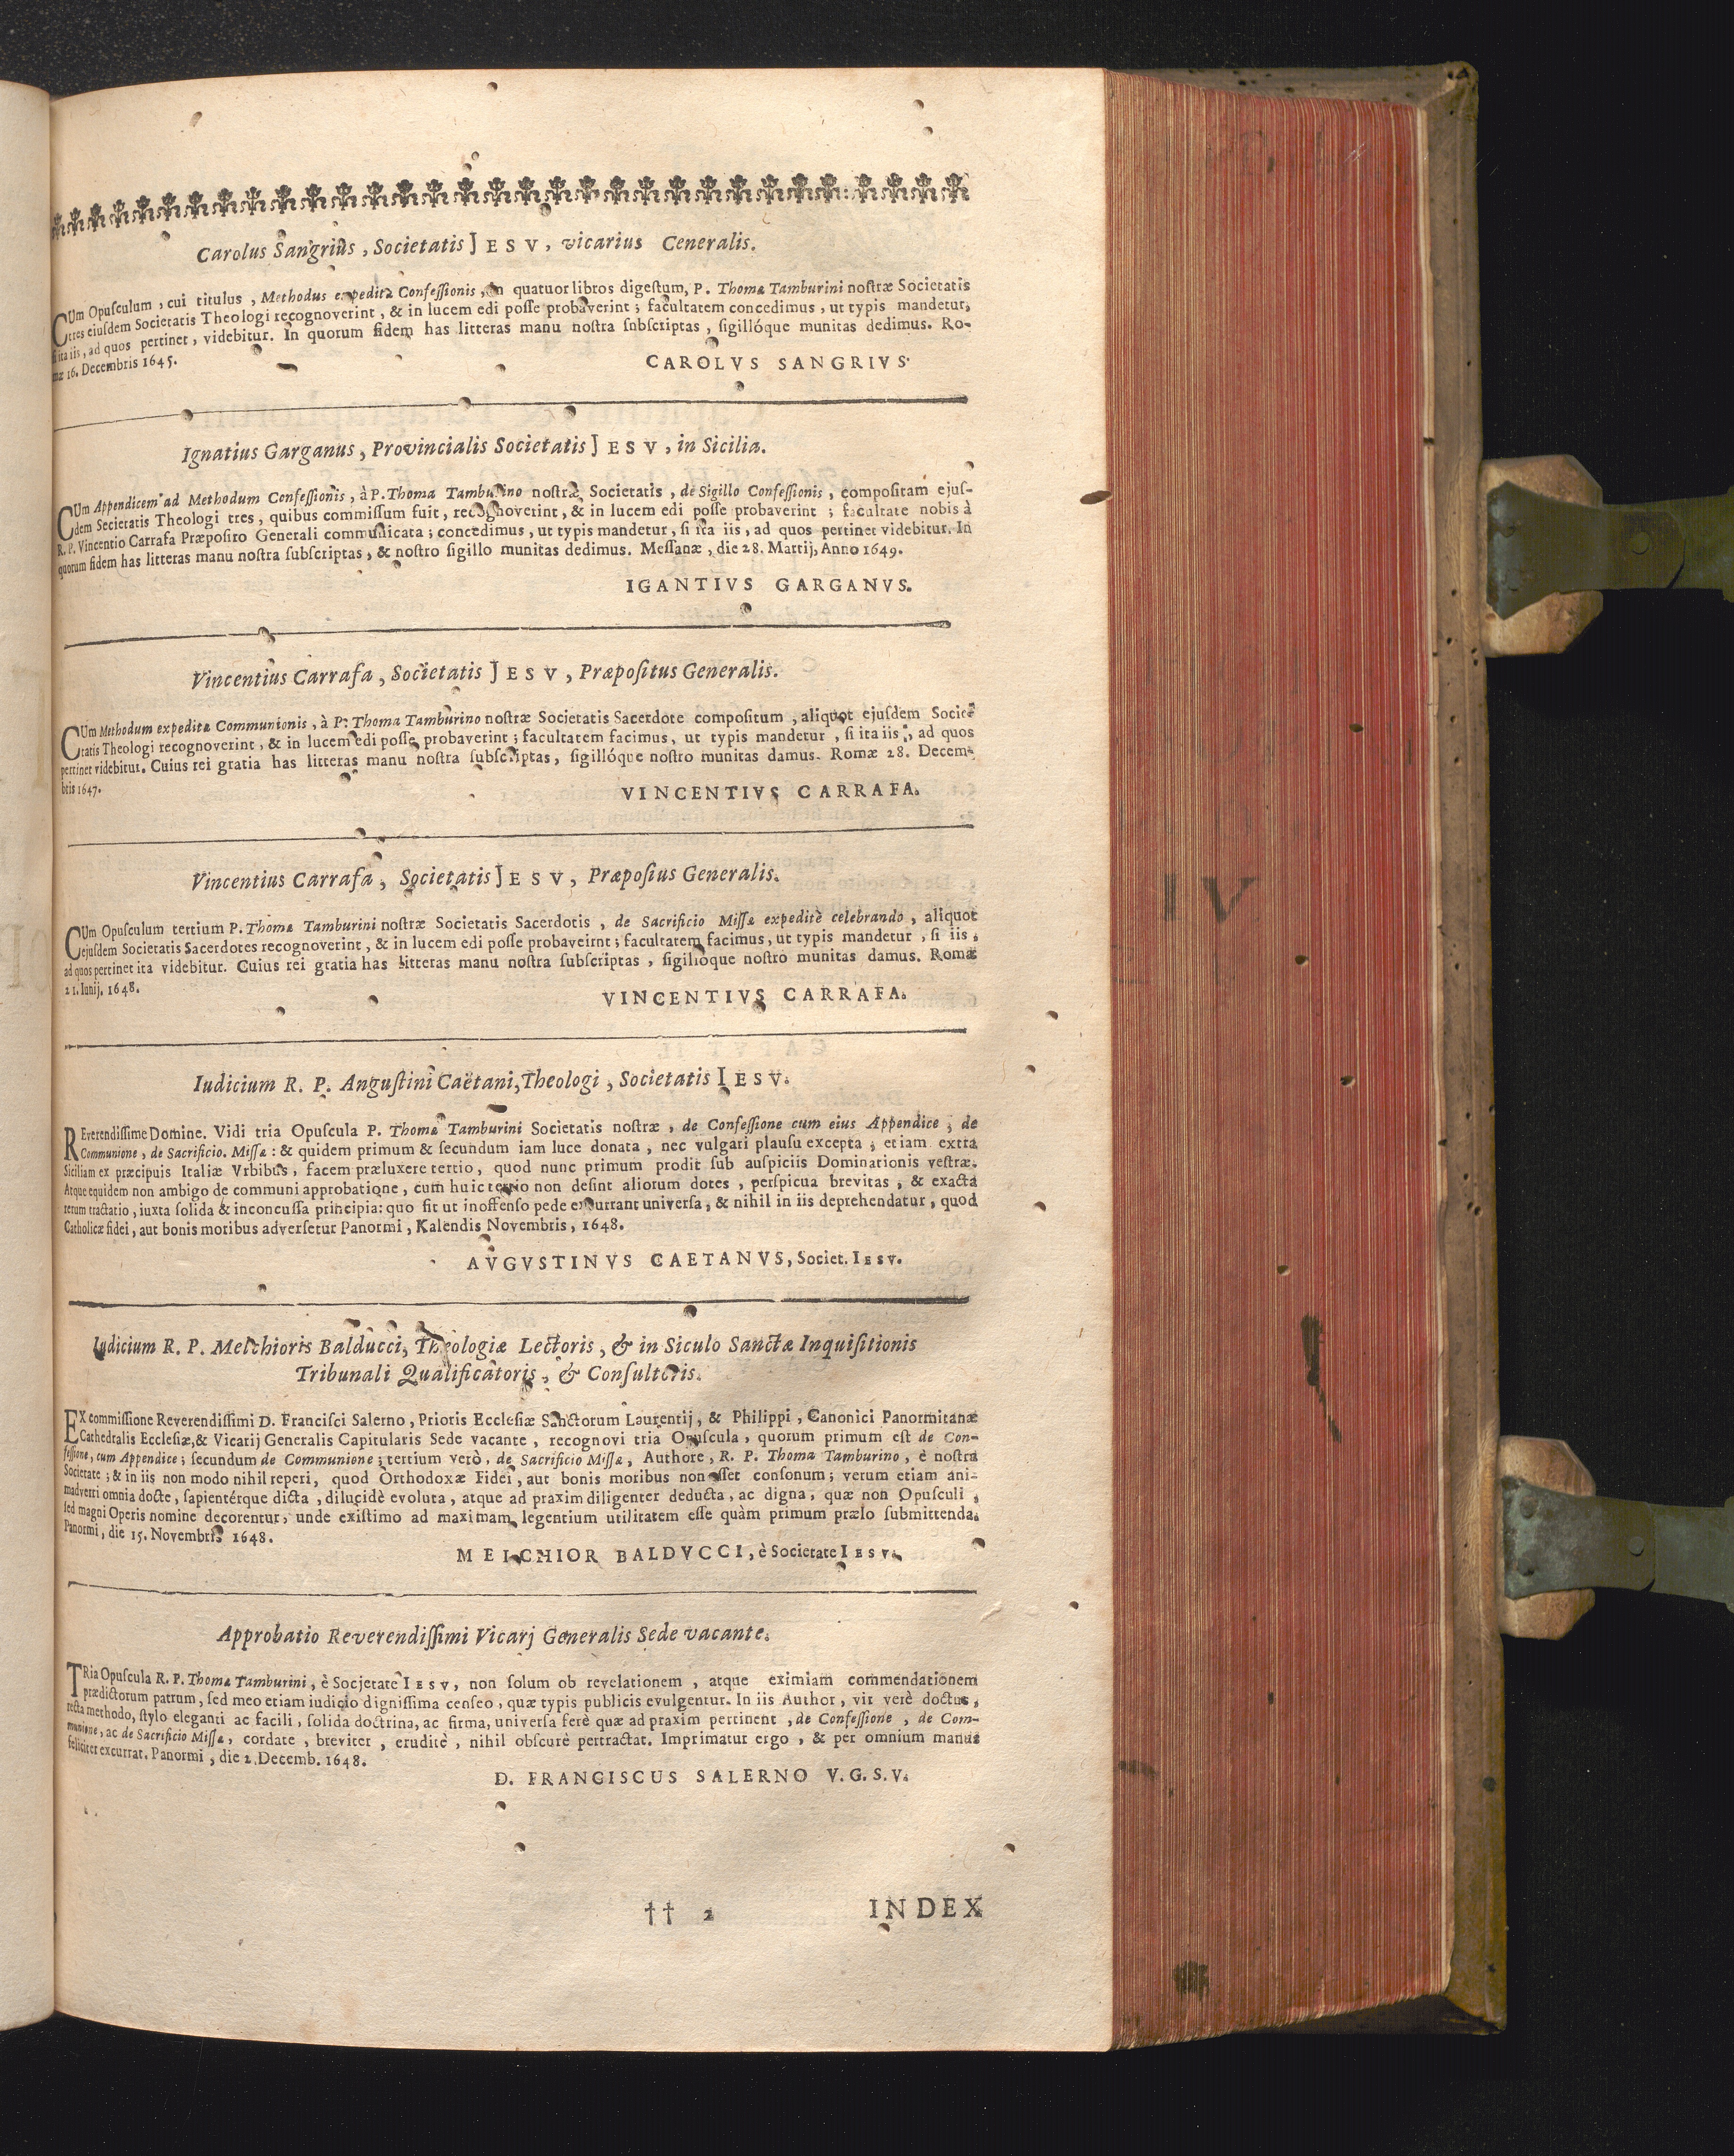 Carolus Sangrius, Societatis JESV, vicarius Ceneralis.
CUm Opuſculum, cui titulus, Methodus expeditæ Confeſſionis, in quatuor libros digeſtum, P. Thomæ Tamburini noſtræ Societatis
tres eiuſdem Societatis Theologi recognoverint, & in lucem edi poſſe probaverint; facultatem concedimus, ut typis mandetur,
ſi ita iis, ad quos pertinet, videbitur. In quorum fidem has litteras manu noſtra ſubſcriptas, ſigillóque munitas dedimus. Ro-
mæ 16. Decembris 1645.
CAROLVS SANGRIVS.
Ignatius Garganus, Provincialis Societatis JESV, in Sicilia.
CUm Appendicem ad Methodum Confeſſionis, à P. Thoma Tamburino noſtræ Societatis, de Sigillo Confeſſionis, compoſitam ejuſ-
dem Secietatis Theologi tres, quibus commiſſum fuit, recognoverint, & in lucem edi poſſe probaverint; facultate nobis à
R. P. Vincentio Carrafa Præpoſito Generali communicata; concedimus, ut typis mandetur, ſi ita iis, ad quos pertinet videbitur. In
quorum fidem has litteras manu noſtra ſubſcriptas, & noſtro ſigillo munitas dedimus. Meſſanæ, die 28. Martij, Anno 1649.
IGANTIVS GARGANVS.
Vincentius Carrafa, Societatis JESV, Præpoſitus Generalis.
CUm Methodum expeditæ Communionis, à P. Thoma Tamburino noſtræ Societatis Sacerdote compoſitum, aliquot ejuſdem Socie-
tatis Theologi recognoverint, & in lucem edi poſſe probaverint; facultatem facimus, ut typis mandetur, ſi ita iis, ad quos
pertinet videbitur. Cuius rei gratia has litteras manu noſtra ſubſcriptas, ſigillóque noſtro munitas damus. Romæ 28. Decem-
bris 1647.
VINCENTIVS CARRAFA.
Vincentius Carrafa, Societatis JESV, Præpoſius Generalis.
CUm Opuſculum tertium P. Thomæ Tamburini noſtræ Societatis Sacerdotis, de Sacrificio Miſſæ expeditè celebrando, aliquot
ejuſdem Societatis Sacerdotes recognoverint, & in lucem edi poſſe probaveirnt; facultatem facimus, ut typis mandetur, ſi iis,
ad quos pertinet ita videbitur. Cuius rei gratia has litteras manu noſtra ſubſcriptas, ſigillóque noſtro munitas damus. Romæ
21. Iunij. 1648.
VINCENTIVS CARRAFA.
Iudicium R. P. Anguſtini Caëtani, Theologi, Societatis IESV.
REverendiſſime Domine. Vidi tria Opuſcula P. Thomæ Tamburini Societatis noſtræ, de Confeſſione cum eius Appendice, de
Communione, de Sacrificio. Miſſæ: & quidem primum & ſecundum iam luce donata, nec vulgari plauſu excepta, etiam extra
Siciliam ex præcipuis Italiæ Vrbibus, facem præluxere tertio, quod nunc primum prodit ſub auſpiciis Dominationis veſtræ.
Atque equidem non ambigo de communi approbatione, cum huic tertio non deſint aliorum dotes, perſpicua brevitas, & exacta
rerum tractatio, iuxta ſolida & inconcuſſa principia: quo fit ut inoffenſo pede excurrant univerſa, & nihil in iis deprehendatur, quod
Catholicæ fidei, aut bonis moribus adverſetur Panormi, Kalendis Novembris, 1648.
AVGVSTINVS CAETANVS, Societ. IESV.
Iudicium R. P. Melchioris Balducci, Theologiæ Lectoris, & in Siculo Sanctæ Inquiſitionis
Tribunali Qualificatoris, & Conſultoris.
EX commiſſione Reverendiſſimi D. Franciſci Salerno, Prioris Eccleſiæ Sanctorum Laurentij, & Philippi, Canonici Panormitanæ
Cathedralis Eccleſiæ, & Vicarij Generalis Capitularis Sede vacante, recognovi tria Opuſcula, quorum primum eſt de Con-
feſſione, cum Appendice; ſecundum de Communione; tertium verò, de Sacrificio Miſſæ, Authore, R. P. Thoma Tamburino, è noſtra
Societate; & in iis non modo nihil reperi, quod Orthodoxæ Fidei, aut bonis moribus non eſſet conſonum; verum etiam ani-
madverti omnia docte, ſapientérque dicta, dilucidè evoluta, atque ad praxim diligenter deducta, ac digna, quæ non Opuſculi,
ſed magni Operis nomine decorentur, unde exiſtimo ad maximam legentium utilitatem eſſe quàm primum prælo ſubmittenda.
Panormi, die 15. Novembris 1648.
MELCHIOR BALDVCCI, è Societate IESV.
Approbatio Reverendiſſimi Vicarj Generalis Sede vacante.
TRia Opuſcula R. P. Thomæ Tamburini, è Societate IESV, non ſolum ob revelationem, atque eximiam commendationem
prædictorum patrum, ſed meo etiam iudicio digniſſima cenſeo, quæ typis publicis evulgentur. In iis Author, vir verè doctus,
recta methodo, ſtylo eleganti ac facili, ſolida doctrina, ac firma, univerſa ferè quæ ad praxim pertinent, de Confeſſione, de Com-
munione, ac de Sacrificio Miſſæ, cordate, breviter, eruditè, nihil obſcurè pertractat. Imprimatur ergo, & per omnium manus
feliciter excurrat. Panormi, die 2. Decemb. 1648.
D. FRANCISCUS SALERNO V. G. S. V.
†† 2 INDEX
IV